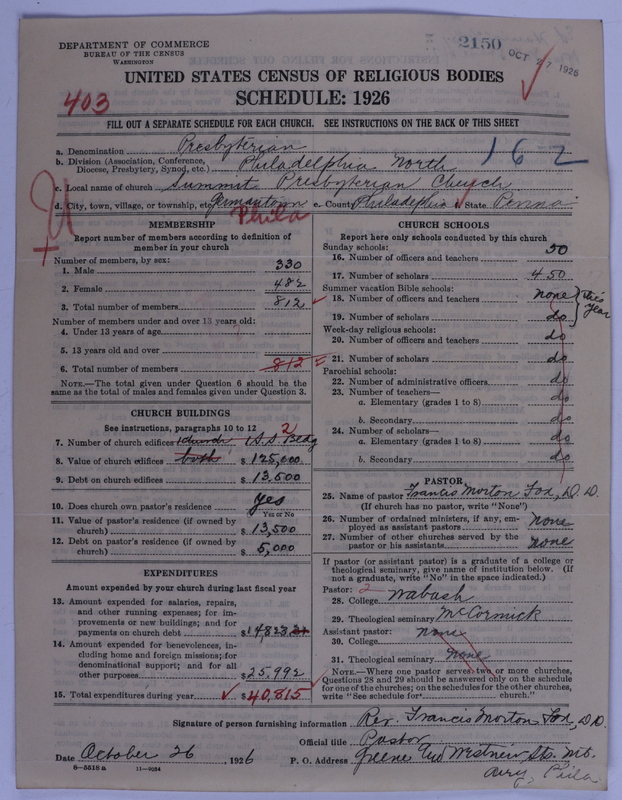 DEPARTMENT OF COMMERCE
BUREAU OF THE CENSUS
WASHINGTON
2150
OCT 27 1926
UNITED STATES CENSUS OF RELIGIOUS BODIES
403
SCHEDULE: 1926
FILL OUT A SEPARATE SCHEDULE FOR EACH CHURCH. SEE INSTRUCTIONS ON THE BACK OF THIS SHEET
a. Denomination Presbyterian
b. Division (Association, Conference, Diocese, Presbytery, Synod, etc.) Philadelphia North 162
c. Local name of church Summit Presbyterian Church
d. City, town, village, or township, etc. Germantown e. County Philadelphia State Penna
Phila
MEMBERSHIP
Report number of members according to definition of
member in your church
Number of members, by sex:
1. Male 330
2. Female 482
3. Total number of members 812
Number of members under and over 13 years old:
4. Under 13 years of age
5. 13 years old and over
6. Total number of members 812
NOTE.—The total given under Question 6 should be the
same as the total of males and females given under Question 3.
CHURCH BUILDINGS
See instructions, paragraphs 10 to 12 2
7. Number of church edifices 1 church 1 S.S. Bldg
8. Value of church edifices both $ 125,000
9. Debt on church edifices $ 13,500
10. Does church own pastor's residence? Yes
Yes or No
11. Value of pastor's residence (if owned by
church) $ 13,500
12. Debt on pastor's residence (if owned by
church) $ 5,000
EXPENDITURES
Amount expended by your church during last fiscal year
13. Amount expended for salaries, repairs,
and other running expenses; for im-
provements or new buildings; and for
payments on church debt $14823
14. Amount expended for benevolences, in-
cluding home and foreign missions; for
denominational support; and for all
other purposes $25,992
15. Total expenditures during year $40,815
CHURCH SCHOOLS
Report here only schools conducted by this church
Sunday schools:
16. Number of officers and teachers 50
17. Number of scholars 450
Summer vacation Bible schools:
18. Number of officers and teachers none this
19. Number of scholars do year
Week-day religious schools:
20. Number of officers and teachers do
21. Number of scholars do
Parochial schools:
22. Number of administrative officers do
23. Number of teachers—
a. Elementary (grades 1 to 8) do
b. Secondary do
24. Number of scholars—
a. Elementary (grades 1 to 8) do
b. Secondary do
PASTOR
25. Name of pastor Francis Morton Fox, D.D.
(If church has no pastor, write "None")
26. Number of ordained ministers, if any, em-
ployed as assistant pastors none
27. Number of other churches served by the
pastor or his assistants none
If pastor (or assistant pastor) is a graduate of a college or
theological seminary, give name of institution below. (If
not a graduate, write "No" in the space indicated.)
Pastor: 2
28. College Wabash
29. Theological seminary McCormick
Assistant pastor:
30. College none
31. Theological seminary none
NOTE.—Where one pastor serves two or more churches,
Questions 28 and 29 should be answered only on the schedule
for one of the churches; on the schedules for the other churches,
write "See schedule for church."
Signature of person furnishing information Rev. Francis Morton Fox, D.D.
Official title Pastor
Date October 26, 1926 P. O. Address Greene and Westview Sts. Mt.
8—5518 a 11—9054
Airy, Phila